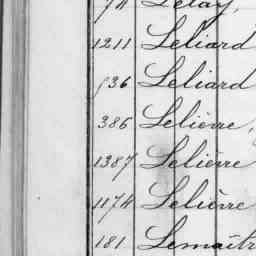 74 Lelay,
1211 Leliard
536 Leliard
386 Lelièvre,
1387 Lelièvre
1174 Lelièvre
181 Lemaîtr